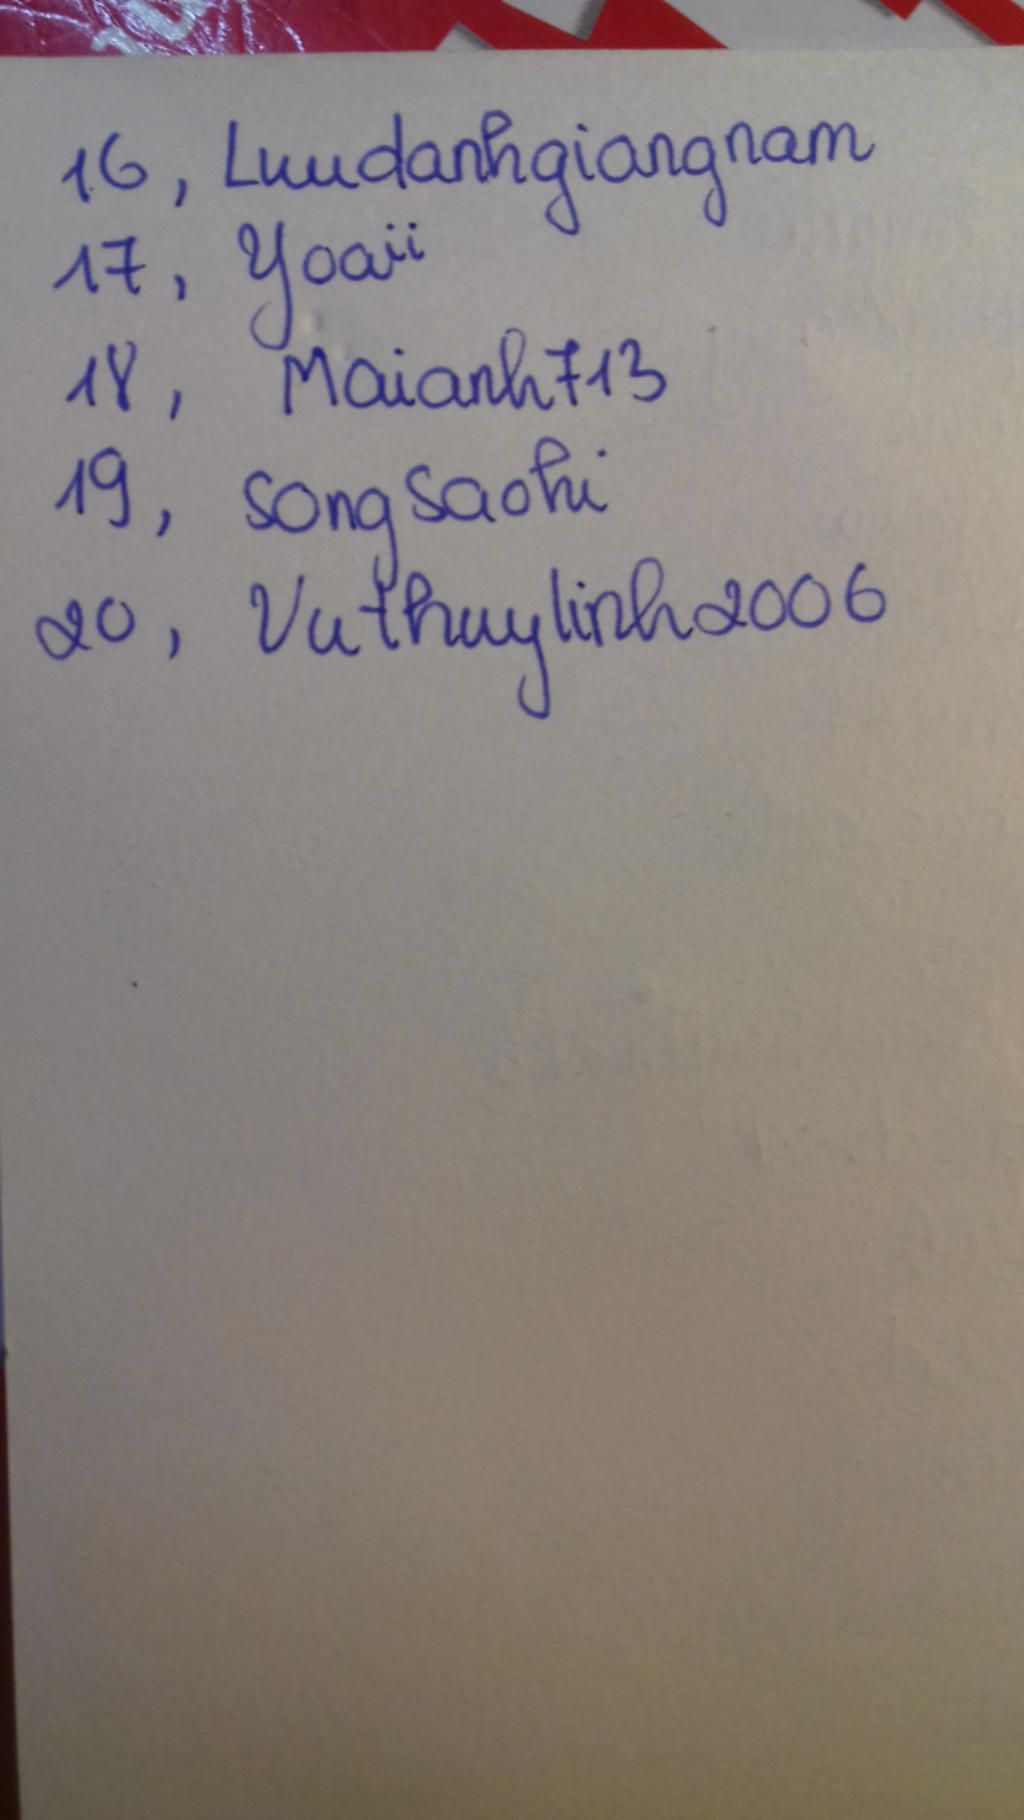 16, Luudanhgiangnam
17, Yoaii
18, Maianh713
19, songsaohi
20, Vuthuylinh2006